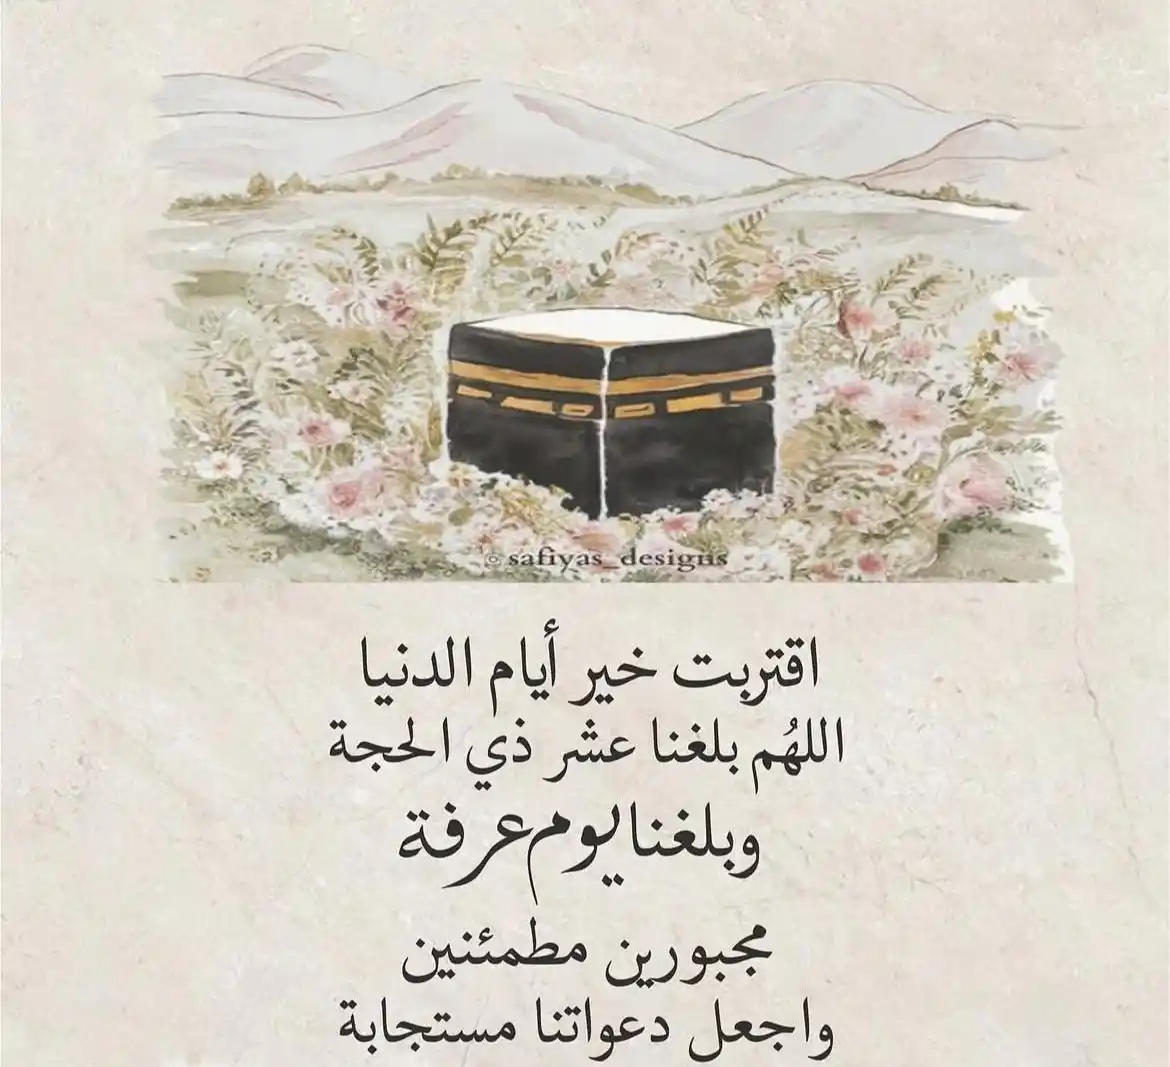 © safiyas_designs
اقتربت خير أيام الدنيا
اللهُم بلغنا عشر ذي الحجة
وبلغنا يوم عرفة
مجبورين مطمئنين
واجعل دعواتنا مستجابة